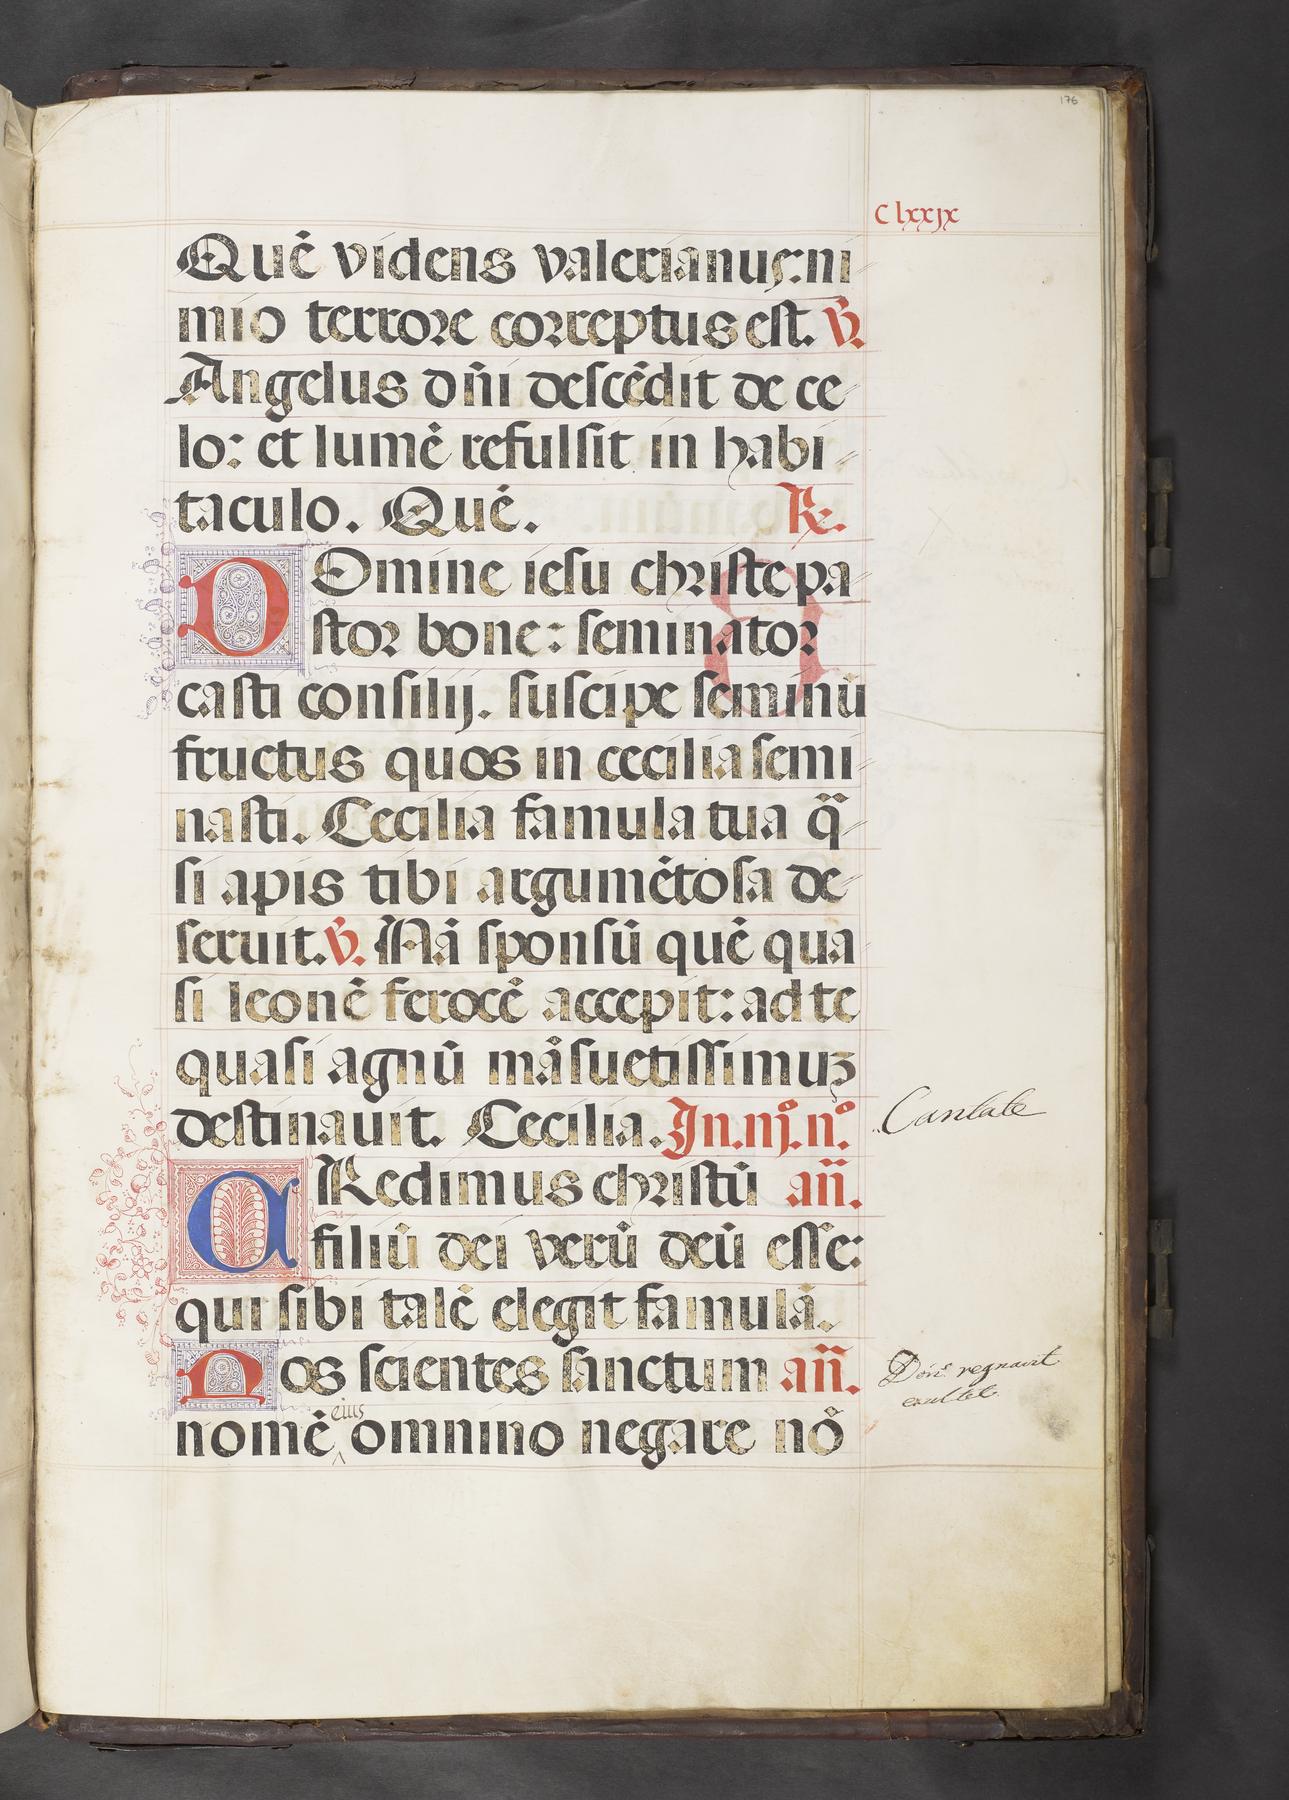 176
Clxxjx
Quē videns valerianus: ni
mio terrore correptus est. ℣.
Angelus dñi descēdit de ce
lo: et lumē refulsit in habi
taculo. Quē. ℟.
DOmine iesu christe pa
stor bone: seminator
casti consilij. suscipe seminū
fructus quos in cecilia semi
nasti. Cecilia famula tua q̄
si apis tibi argumētosa de
seruit. ℣. Nā sponsū quē qua
si leonē ferocē accepit: ad te
quasi agnū māsuetissimuꝫ
destinauit. Cecilia. In.iijͦ.nͦ.
Cantate
CRedimus christū añ.
filiū dei verū deū esse:
qui sibi talē elegit famulā.
Nos scientes sanctum añ.
Dom̄. regnavit
exultet
eius
nomē omnino negare nō